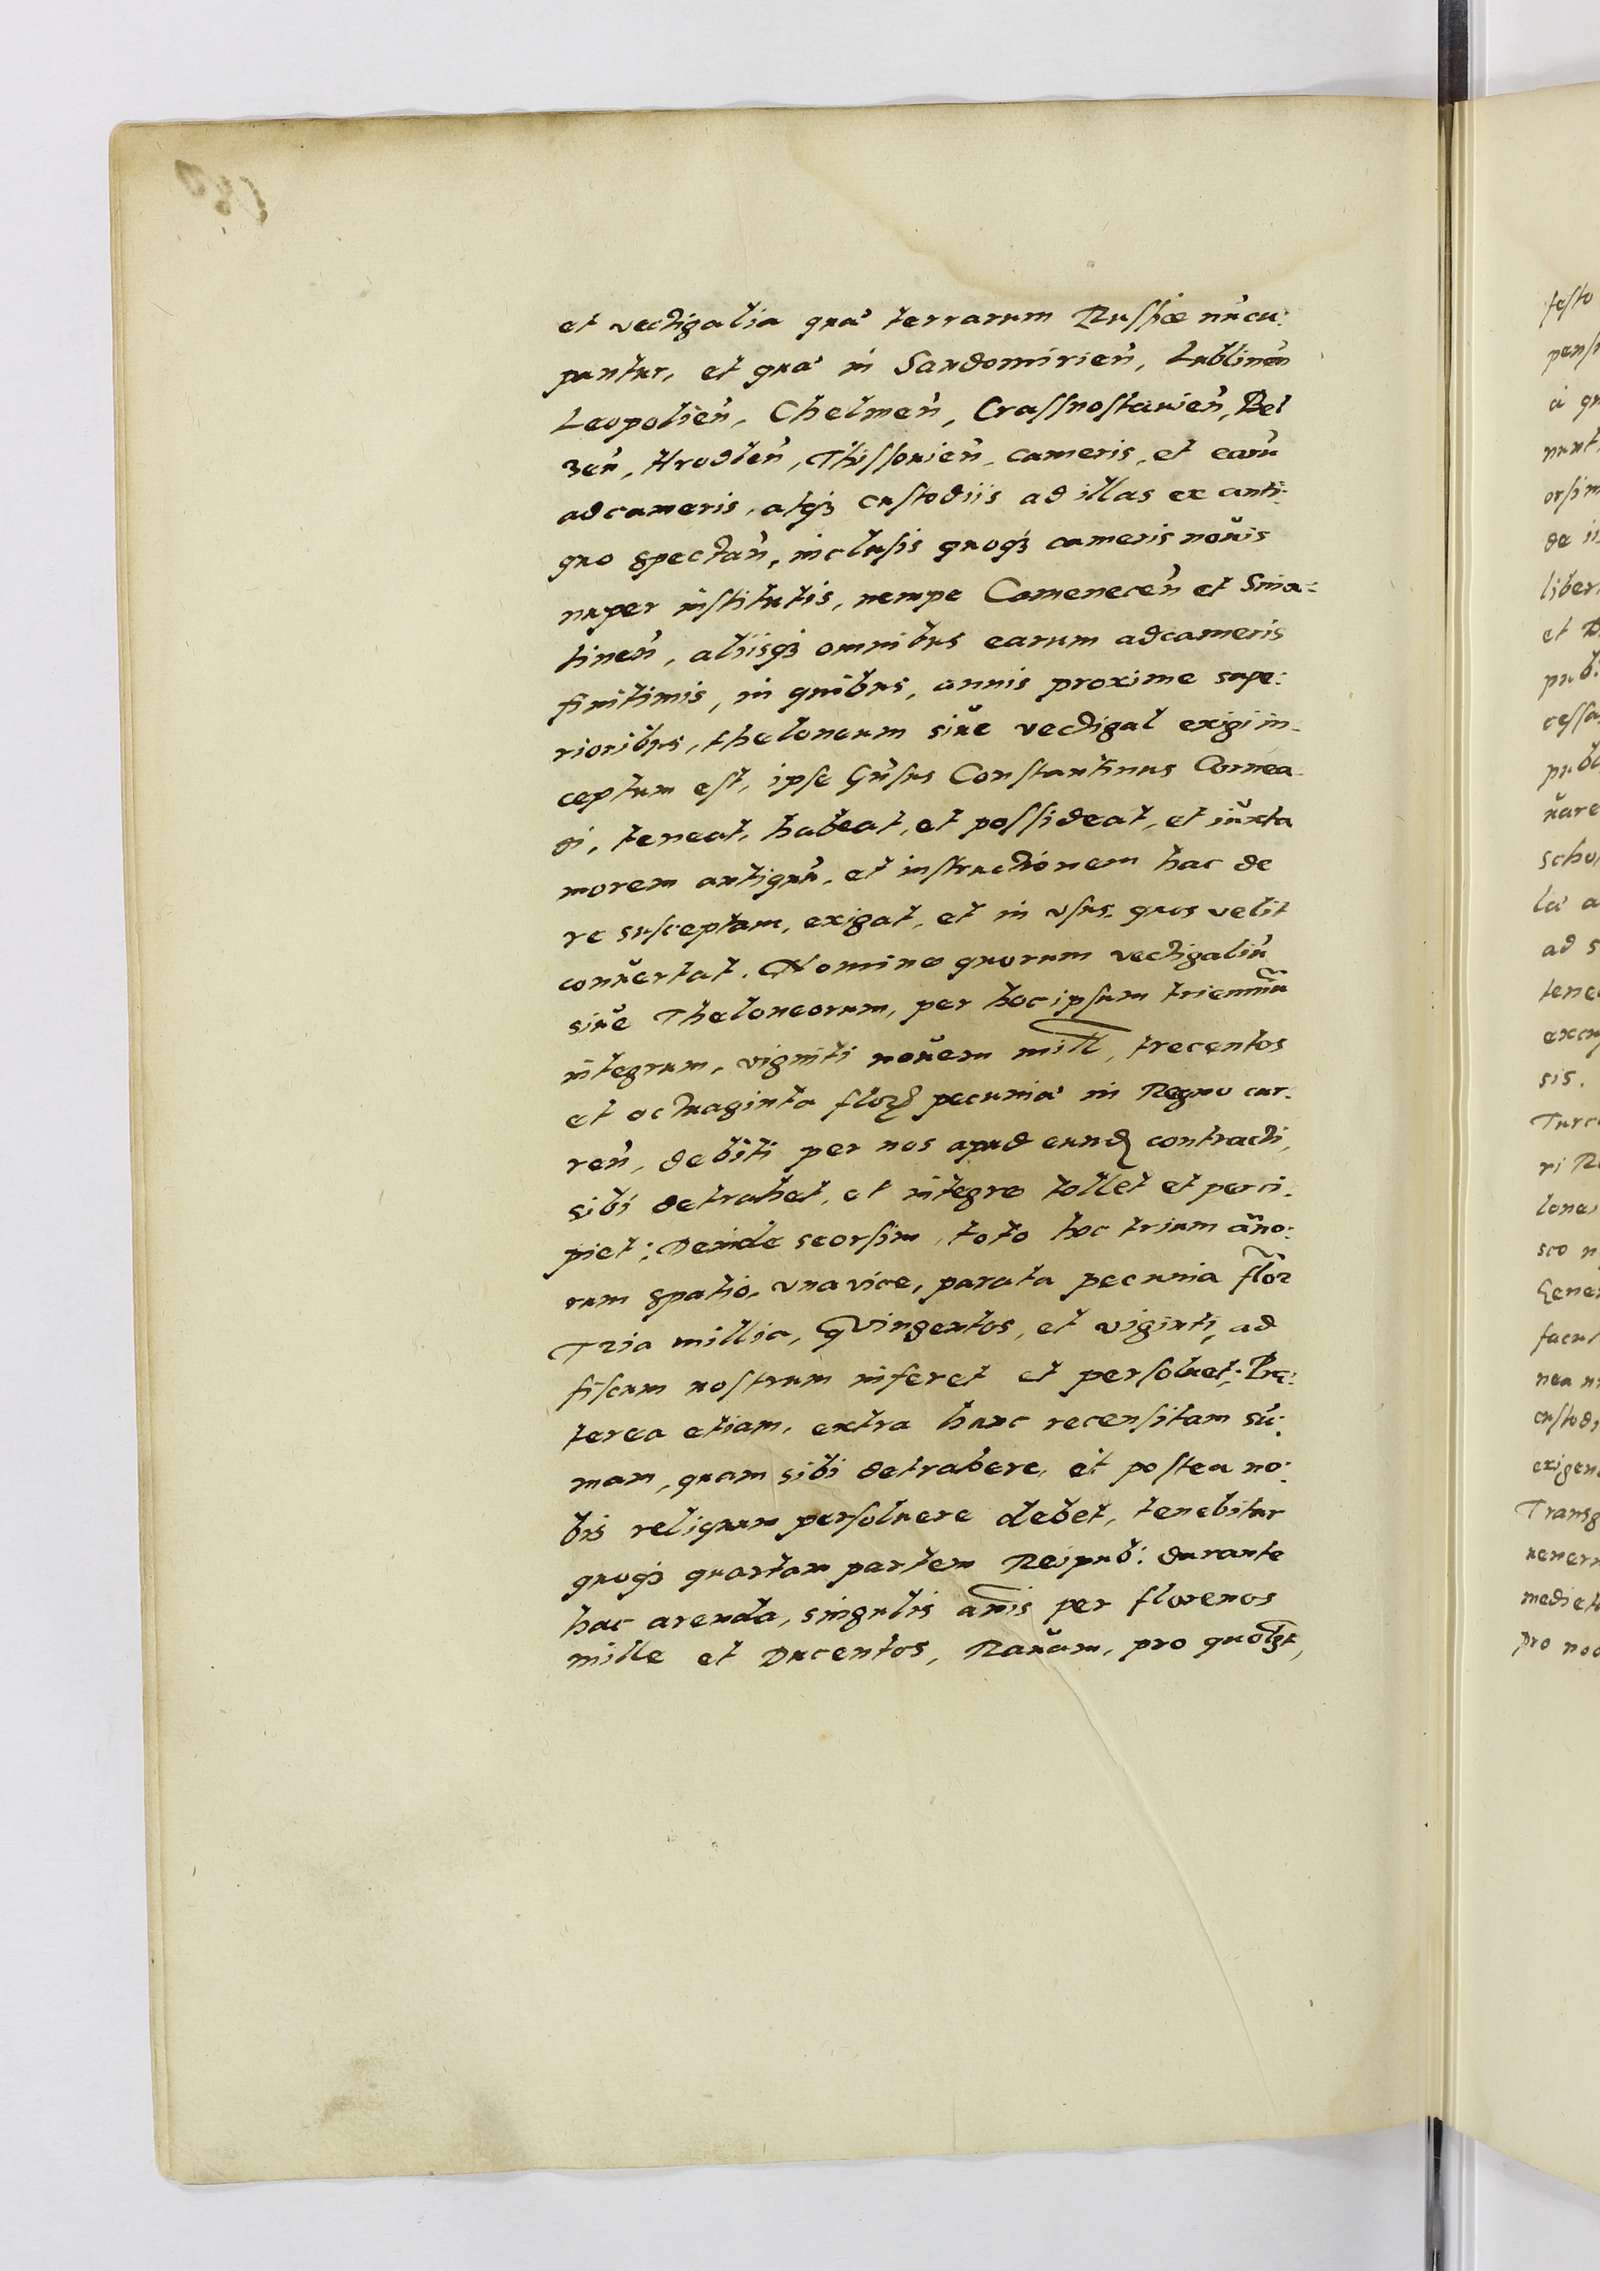 et vectigalia quæ terrarum Russiæ nūcu:
pantur, et quæ in Sandomirieñ, Lublineñ
Leopolieñ, Chelmeñ, Crassnostavieñ, Bel
zeñ, Hrodleñ, Thissovieñ, cameris, et earū
adcameris, atqȝ custodiis ad illas ex anti:
quo spectañ, inclusis quoqȝ cameris novis
nuper institutis, nempe Cameneceñ et Snia:
tineñ, aliisqȝ omnibus earum adcameris
finitimis, in quibus, annis proxime supe:
rioribus, theloneum sive vectigal exigi in:
ceptum est, ipse Gñsus Constantinus Cornea:
di, teneat, habeat, et possideat, et iuxta
morem antiquū, et instructionem hac de
re susceptam, exigat, et in usus quos velit
convertat. Nomine quorum vectigaliū
sive Theloneorum, per hoc ipsum trienniū
integrum, viginti novem mill, trecentos
et octuaginta florꝭ pecuniæ in Regno cur:
reñ, debiti per nos apud eundꝭ contracti,
sibi detrahet, et integre tollet et perci:
piet; Deinde seorsim, toto hoc trium año:
rum spatio, una vice, parata pecunia flor
Tria millia, Quingentos, et viginti, ad
fiscum nostrum inferet et persolvet; Præ:
terea etiam, extra hanc recensitam sū:
mam, quam sibi detrahere, et postea no:
bis reliquum persolvere debet, tenebitur
quoqȝ quartam partem Reipub: durante
hac arenda, singulis añis per florenos
mille et Ducentos, Ravam, pro quolȝt,